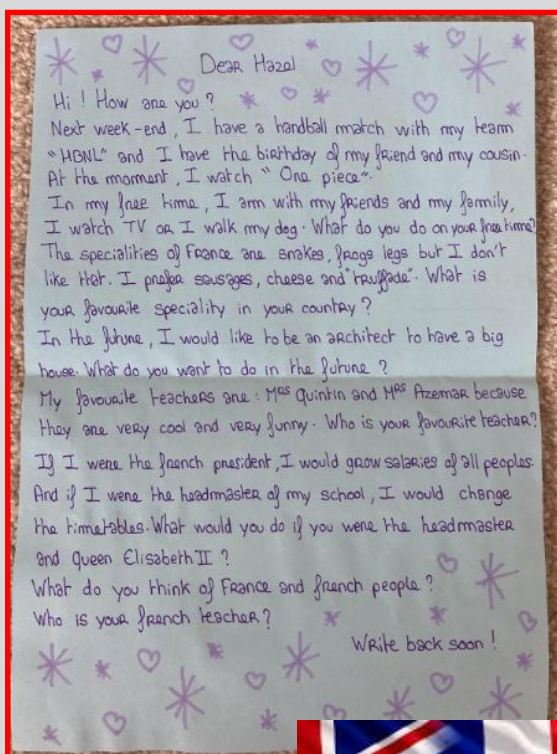 Dear Hazel
Hi ! How are you ?
Next week-end, I have a handball match with my team
"HBNL" and I have the birthday of my friend and my cousin.
At the moment, I watch "One piece".
In my free time, I am with my friends and my family,
I watch TV or I walk my dog. What do you do on your free time?
The specialities of France are snakes, frogs legs but I don't
like that. I prefer sausages, cheese and "truffade". What is
your favourite speciality in your country ?
In the future, I would like to be an architect to have a big
house. What do you want to do in the future ?
My favourite teachers are : Mrs Quintin and Mrs Azemar because
they are very cool and very funny. Who is your favourite teacher?
If I were the french president, I would grow salaries of all peoples.
And if I were the headmaster of my school, I would change
the timetables. What would you do if you were the headmaster
and Queen Elisabeth II ?
What do you think of France and french people ?
Who is your french teacher ?
Write back soon !